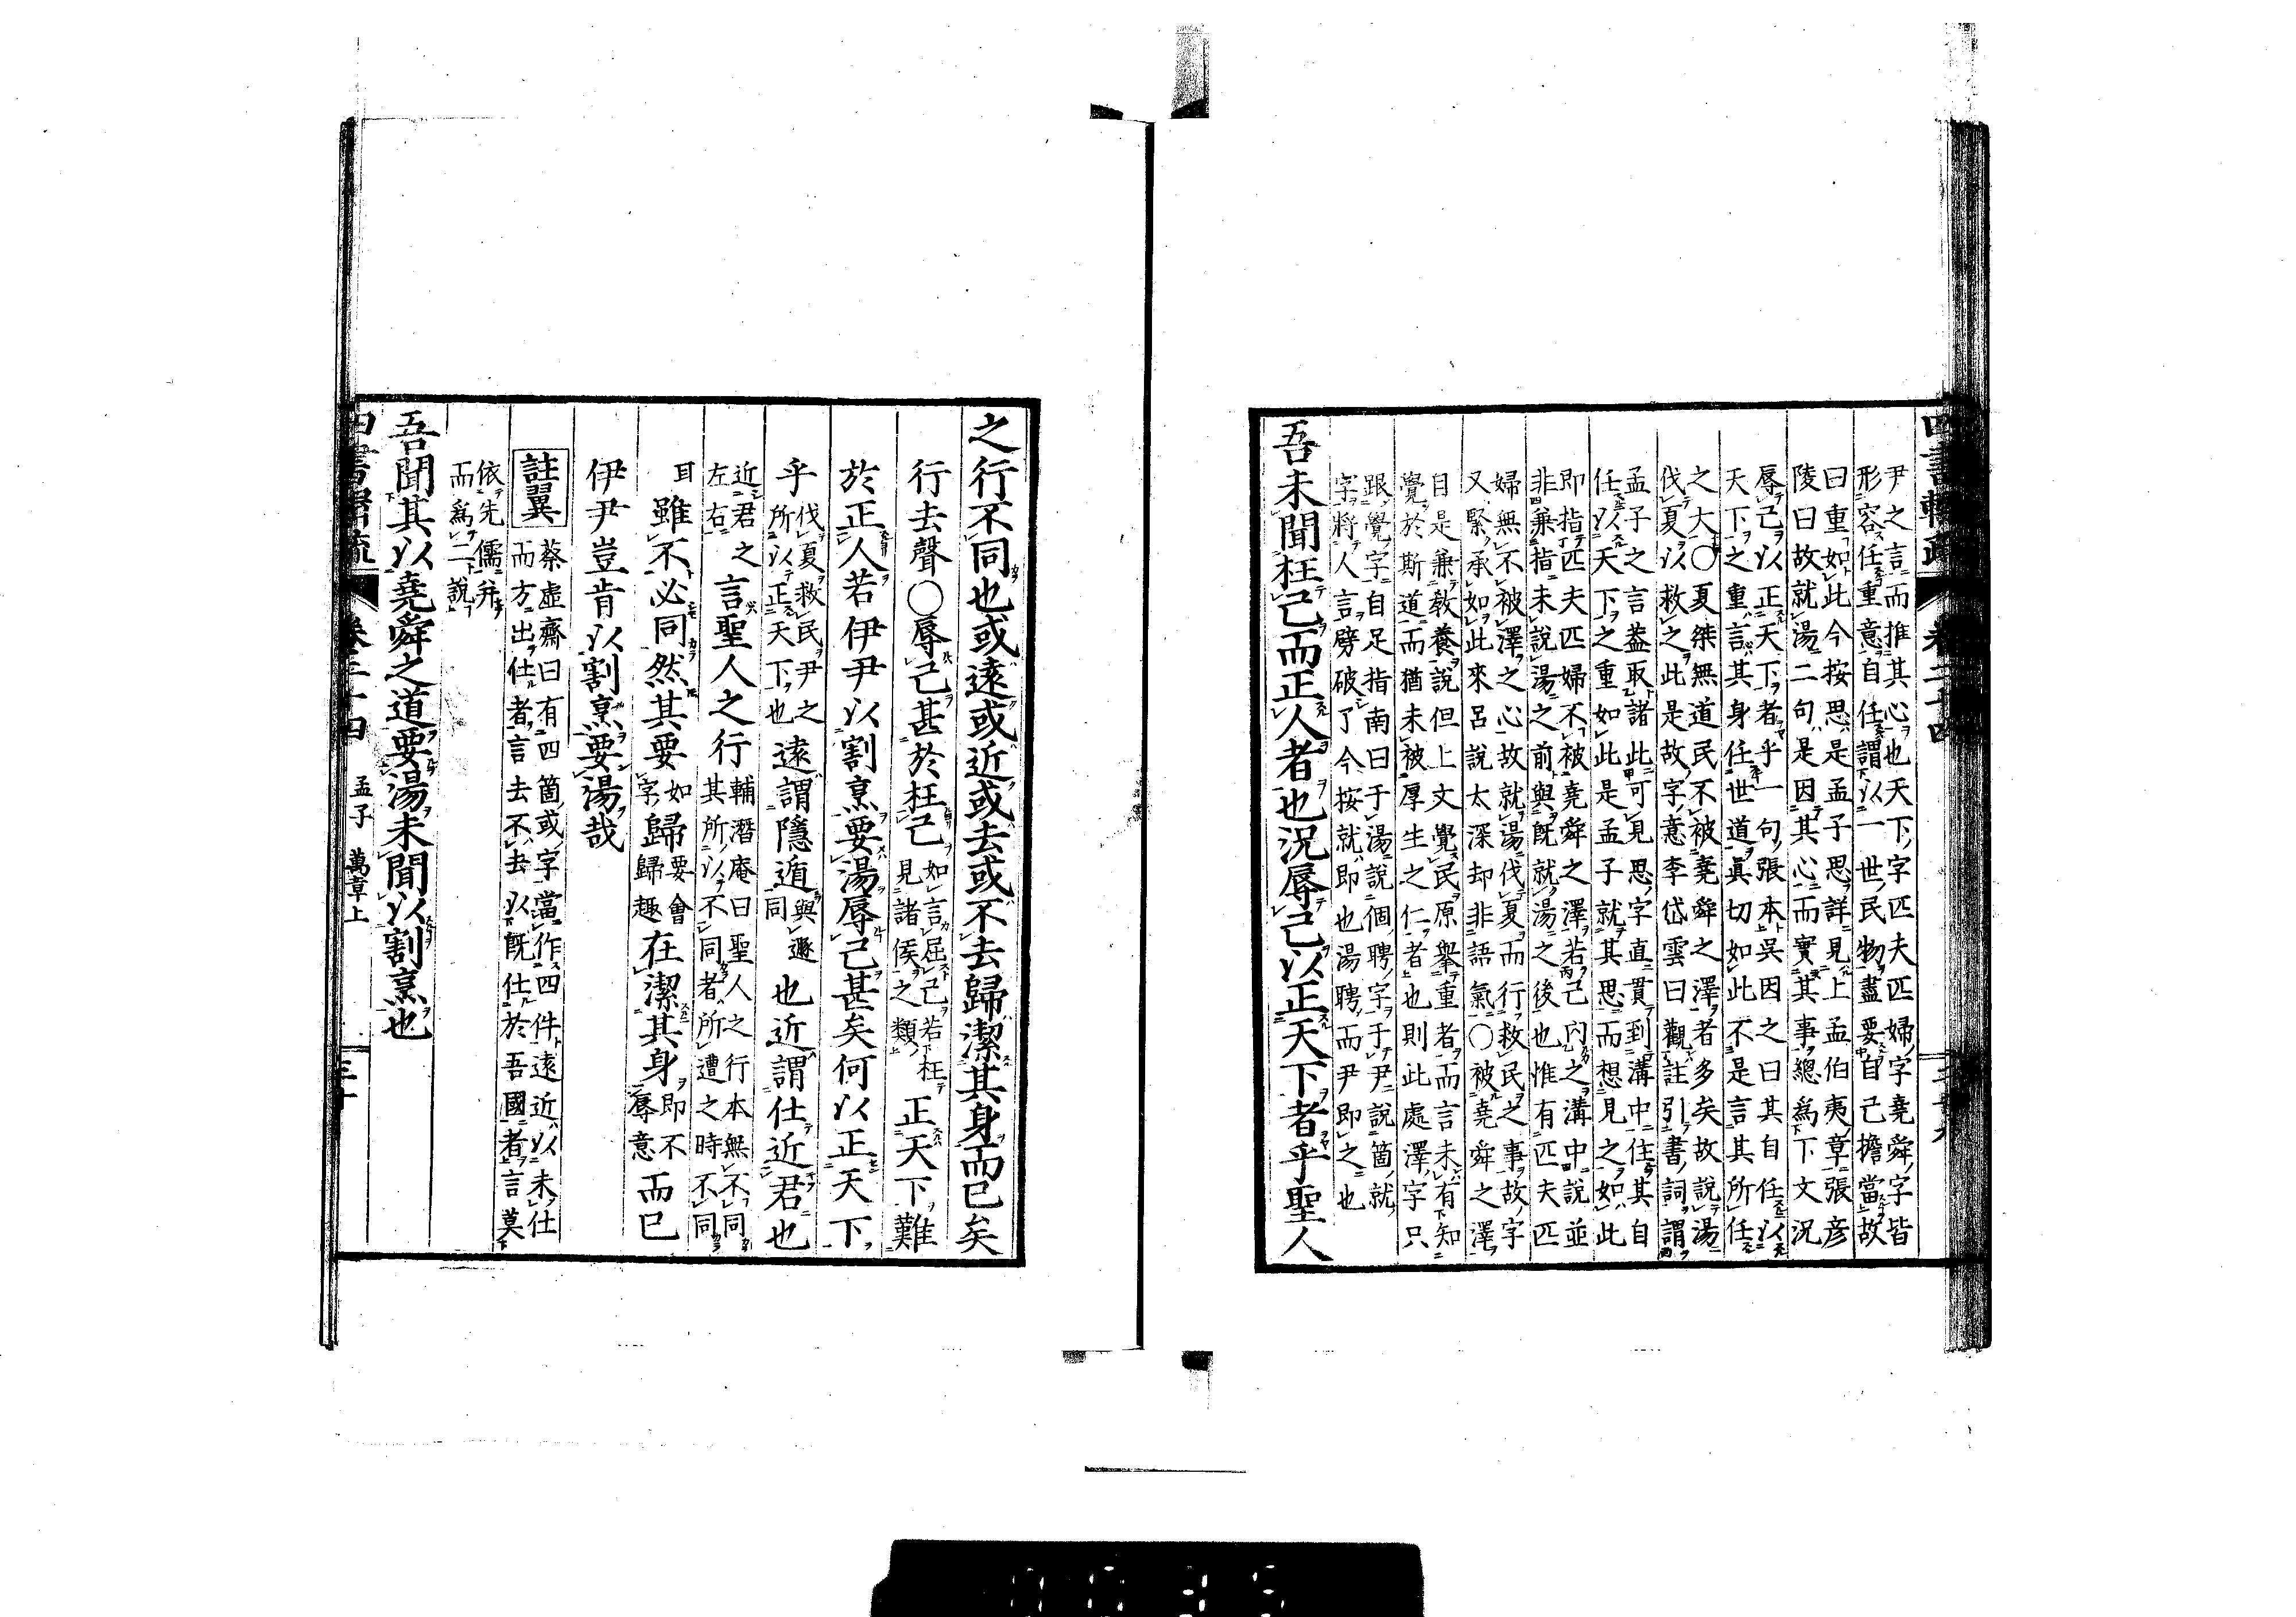 尹之言而推其心也天下字匹夫匹婦字堯舜字皆
形容任重意自任謂以一世民物盡要自己擔當故
曰重如此今按思是孟子思詳見上孟伯夷章張彦
陵曰故就湯二句是因其心而實其事總爲下文況
辱己以正天下者乎一句張本吳因之曰其自任以
天下之重言其身任世道眞切如此不是言其所任
之大〇夏桀無道民不被堯舜之澤者多矣故說湯
伐夏以救之此是故字意李岱雲曰觀註引書詞謂
孟子之言蓋取諸此可見思字直貫到溝中住其自
任以天下之重如此是孟子就其思而想見之如此
即指匹夫匹婦不被堯舜之澤若己內之溝中說並
非兼指未說湯之前與既就湯之後也惟有匹夫匹
婦無不被澤之心故就湯伐夏而行救民之事故字
又緊承如此來呂說太深却非語氣〇被堯舜之澤
目是兼敎養說但上文覺民原擧重者而言未有知
覺於斯道而猶未被厚生之仁者也則此處澤字只
跟覺字自足指南曰于湯說個聘字于尹說箇就
字將人言劈破了今按就即也湯聘而尹即之也
吾未聞枉己而正人者也況辱己以正天下者乎聖人
之行不同也或遠或近或去或不去歸潔其身而已矣
行去聲〇辱己甚於枉己如言屈己若枉見諸侯之類正天下難
於正人若伊尹以割烹要湯辱己甚矣何以正天下
乎伐夏救民尹之所以正天下也遠謂隱遁與遯同也近謂仕近君也
近君之左右言聖人之行輔潛庵曰聖人之行本無不同其所以不同者所遭之時不同
耳雖不必同然其要如字歸要會歸趣在潔其身即不辱意而已
伊尹豈肯以割烹要湯哉
註翼蔡虛齋曰有四箇或字當作四件遠近以未仕
而方出仕者言去不去以既仕於吾國者言莫
依先儒并
而爲二說
吾聞其以堯舜之道要湯未聞以割烹也
孟子 萬章上